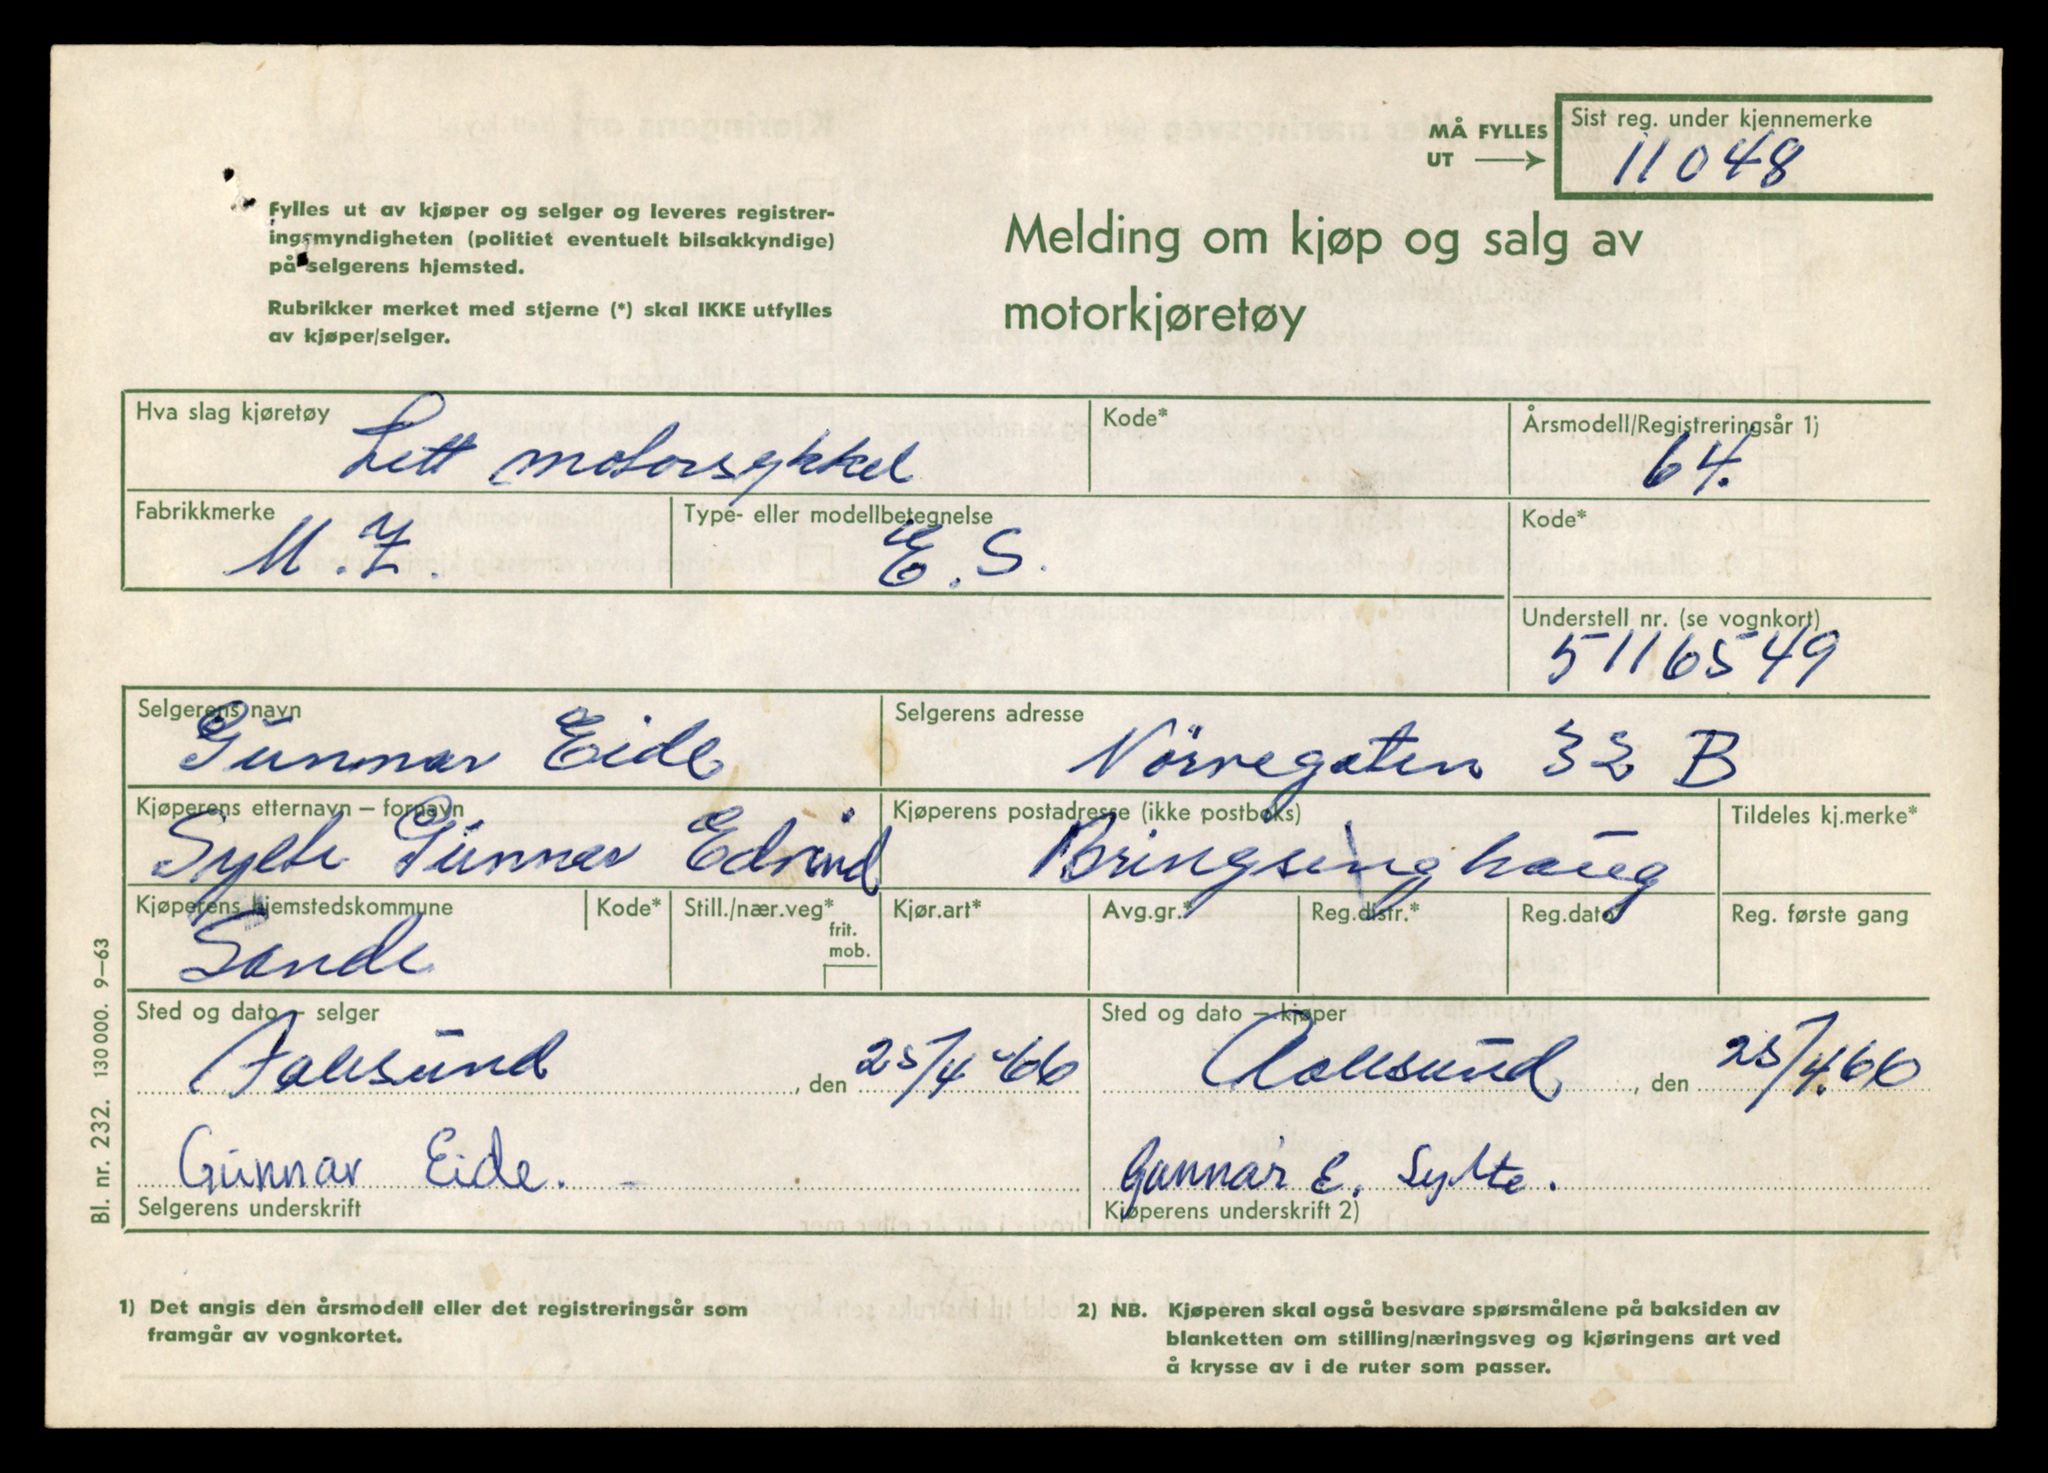 MÅ FYLLES
UT
Sist reg. under kjennemerke
11048
Fylles ut av kjøper og selger og leveres registrer-
ingsmyndigheten (politiet eventuelt bilsakkyndige)
på selgerens hjemsted.
Rubrikker merket med stjerne (*) skal IKKE utfylles
av kjøper/selger.
Melding om kjøp og salg av
motorkjøretøy
Hva slag kjøretøy
Lett motorsykkel
Kode*
Årsmodell/Registreringsår 1)
64.
Fabrikkmerke
M.Z.
Type- eller modellbetegnelse
E.S.
Kode*
Understell nr. (se vognkort)
5116549
Selgerens navn
Gunnar Eide
Selgerens adresse
Nörregaten 32 B
Kjøperens etternavn – fornavn
Sylte Gunnar Edvind
Kjøperens postadresse (ikke postboks)
Bringsinghaug
Tildeles kj.merke*
Kjøperens hjemstedskommune
Sande
Kode*
Still./nær.veg*
frit.
mob.
Kjør.art*
Avg.gr.*
Reg.distr.*
Reg.dato
Reg. første gang
Sted og dato – selger
Aalesund, den 25/4-66
Sted og dato – kjøper
Aalesund, den 25/4.66
Gunnar Eide.
Selgerens underskrift
Gunnar E. Sylte.
Kjøperens underskrift 2)
Bl. nr. 232. 130 000. 9–63
1) Det angis den årsmodell eller det registreringsår som
framgår av vognkortet.
2) NB. Kjøperen skal også besvare spørsmålene på baksiden av
blanketten om stilling/næringsveg og kjøringens art ved
å krysse av i de ruter som passer.